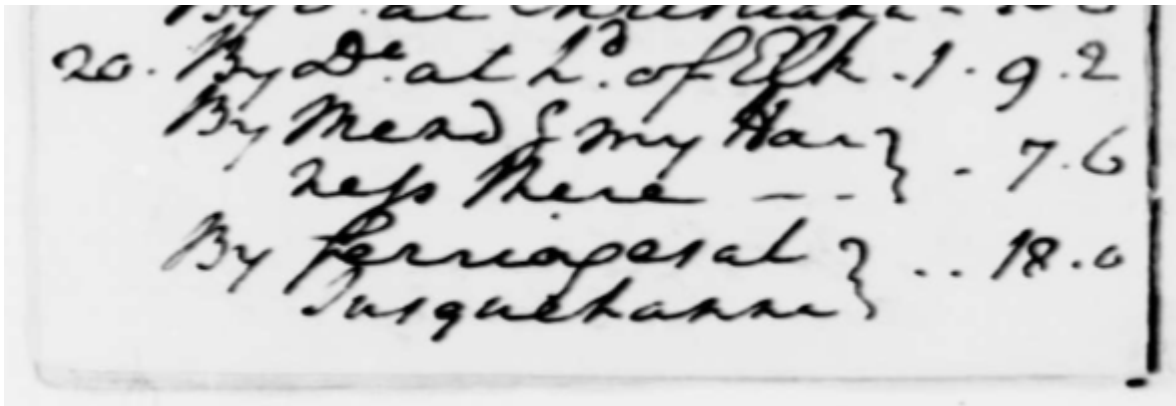 By Do. at Christiana
20. By Do. at Hd. of Elk . 1 . 9 . 2
By Mendg my Har
ness there — — } . 7 . 6
By Ferriages at
Susquehanna } . . 18 . 0